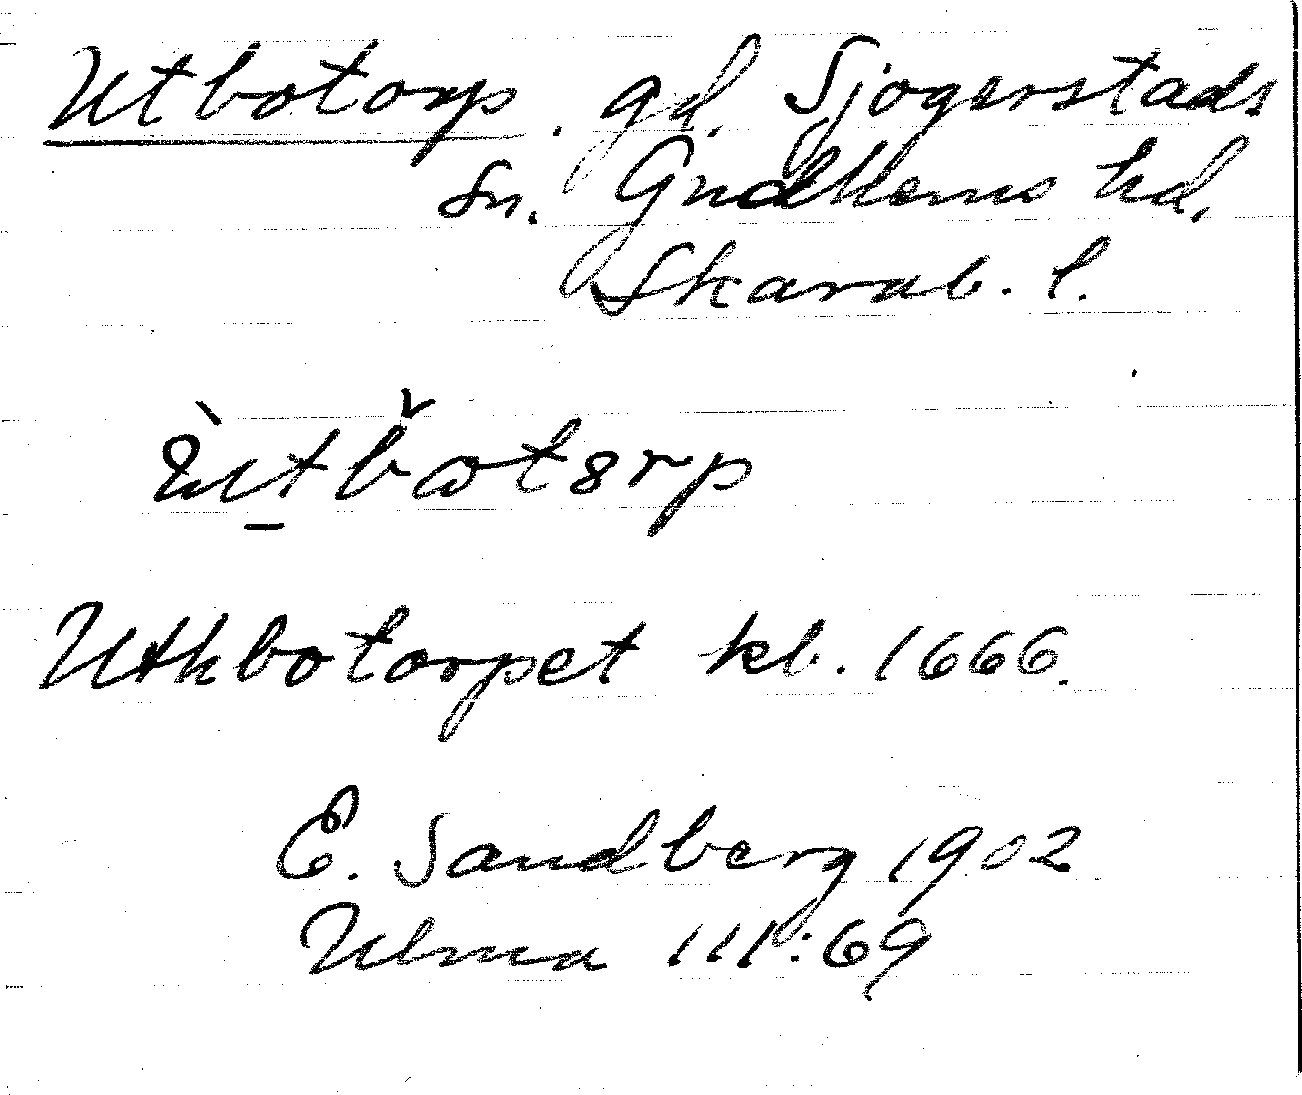 Utbotorp. gd. Sjogerstads
sn. Gudhems hd.
Skarab. l.
Uthbotorpet kb. 1666.
E. Sandberg 1902
Ulma 111:69